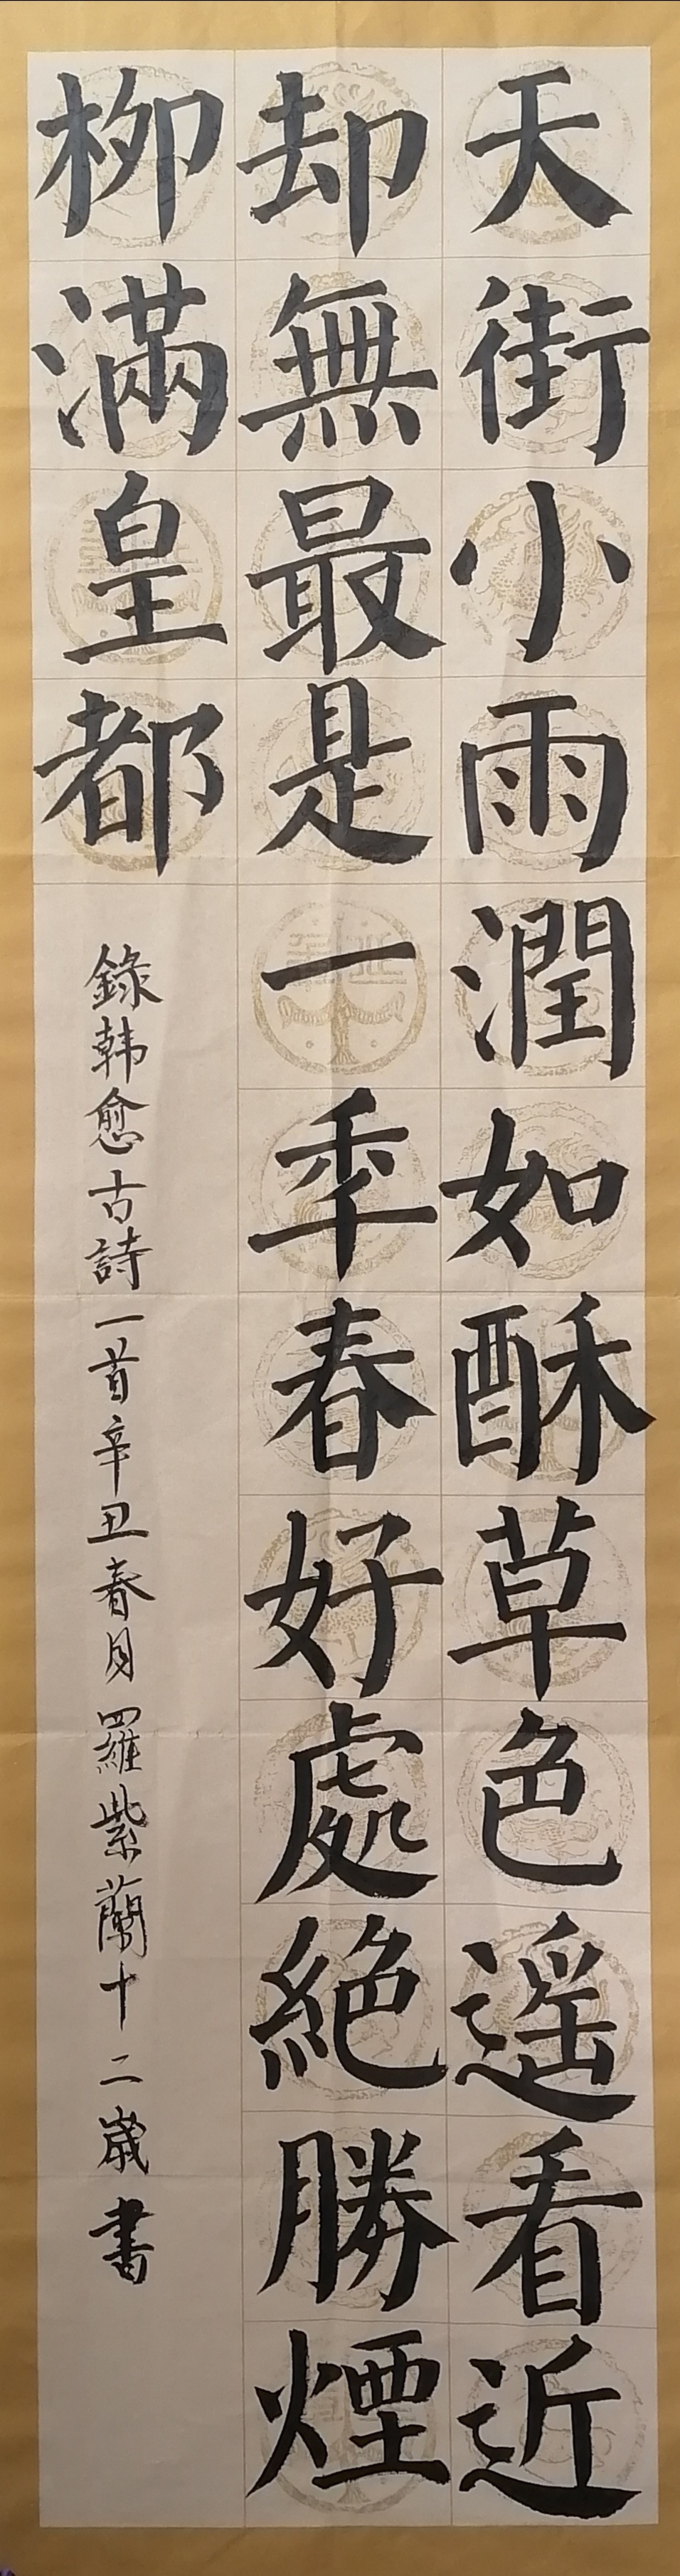 天街小雨潤如酥草色遥看近
却無最是一季春好處絶勝煙
柳滿皇都
錄韩愈古詩一首辛丑春月羅紫蘭十二歲書